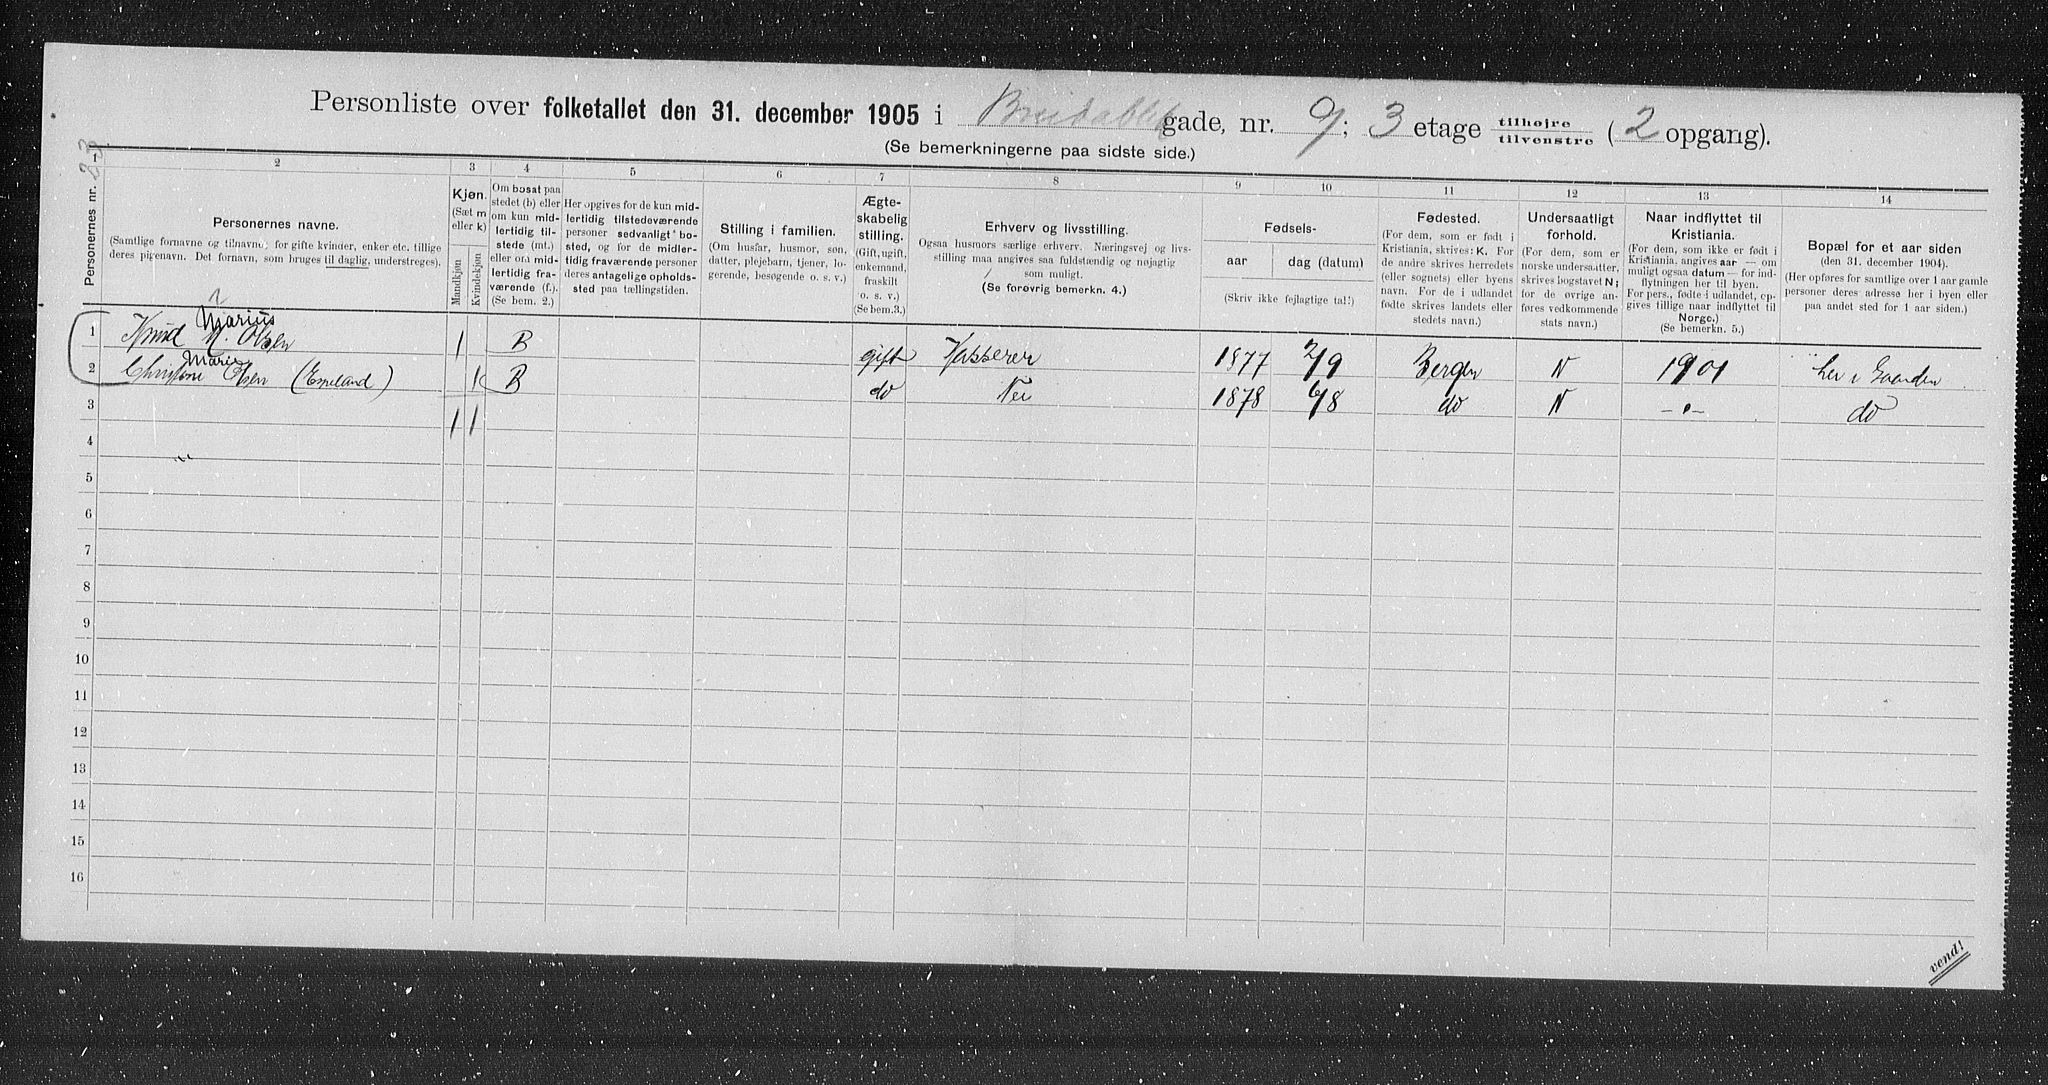 Personliste over folketallet den 31. december 1905 i Breidablik gade, nr. 9; 3 etage tilhøjre tilvenstre (2 opgang).
(Se bemerkningerne paa sidste side.)
23.
1 2 3 4 5 6 7 8 9 10 11 12 13 14
Personernes nr.
Personernes navne.
(Samtlige fornavne og tilnavne; for gifte kvinder, enker etc. tillige
deres pigenavn. Det fornavn, som bruges til daglig, understreges).
Kjøn.
(Sæt m
eller k)
Mandkjøn
Kvindekjøn
Om bosat paa
stedet (b) eller
om kun mid-
lertidig til-
stede (mt.)
eller om mid-
lertidig fra-
værende (f.).
(Se bem. 2.)
Her opgives for de kun mid-
lertidig tilstedeværende
personer sedvanligt bo-
sted, og for de midler-
tidig fraværende personer
deres antagelige opholds-
sted paa tællingstiden.
Stilling i familien.
(Om husfar, husmor, søn,
datter, plejebarn, tjener, lo-
gerende, besøgende o. s. v.)
Ægte-
skabelig
stilling.
(Gift, ugift,
enkemand,
fraskilt
o. s. v.)
(Se bem.3.)
Erhverv og livsstilling.
Ogsaa husmors særlige erhverv. Næringsvej og livs-
stilling maa angives saa fuldstændig og nøjagtig
som muligt.
(Se forøvrig bemerkn. 4.)
Fødsels-
aar
dag (datum)
(Skriv ikke fejlagtige tal!)
Fødested.
(For dem, som er født i
Kristiania, skrives: K. For
de andre skrives herredets
(eller sognets) eller byens
navn. For de i udlandet
fødte skrives landets eller
stedets navn.)
Undersaatligt
forhold.
(For dem, som er
norske undersaatter,
skrives bogstavet N;
for de øvrige an-
føres vedkommende
stats navn.)
Naar indflyttet til
Kristiania.
(For dem, som ikke er født i
Kristiania, angives aar — om
muligt ogsaa datum — for ind-
flytningen her til byen.
For pers., født e i udlandet, op-
gives tillige naar indflyttet til
Norge.)
(Se bemerkn. 5.)
Bopæl for et aar siden
(den 31. december 1904).
(Her opføres for samtlige over 1 aar gamle
personer deres adresse her i byen eller
paa andet sted for 1 aar siden.)
1 Knud Marius M. Olsen 1 B gift Kasserer 1877 2/9 Bergen N 1901 her i Gaarden
2 Christine Marie Olsen (Espeland) 1 B do Nei 1878 6/8 do N -"- do
3 1 1
4
5
6
7
8
9
10
11
12
13
14
15
16
vend!